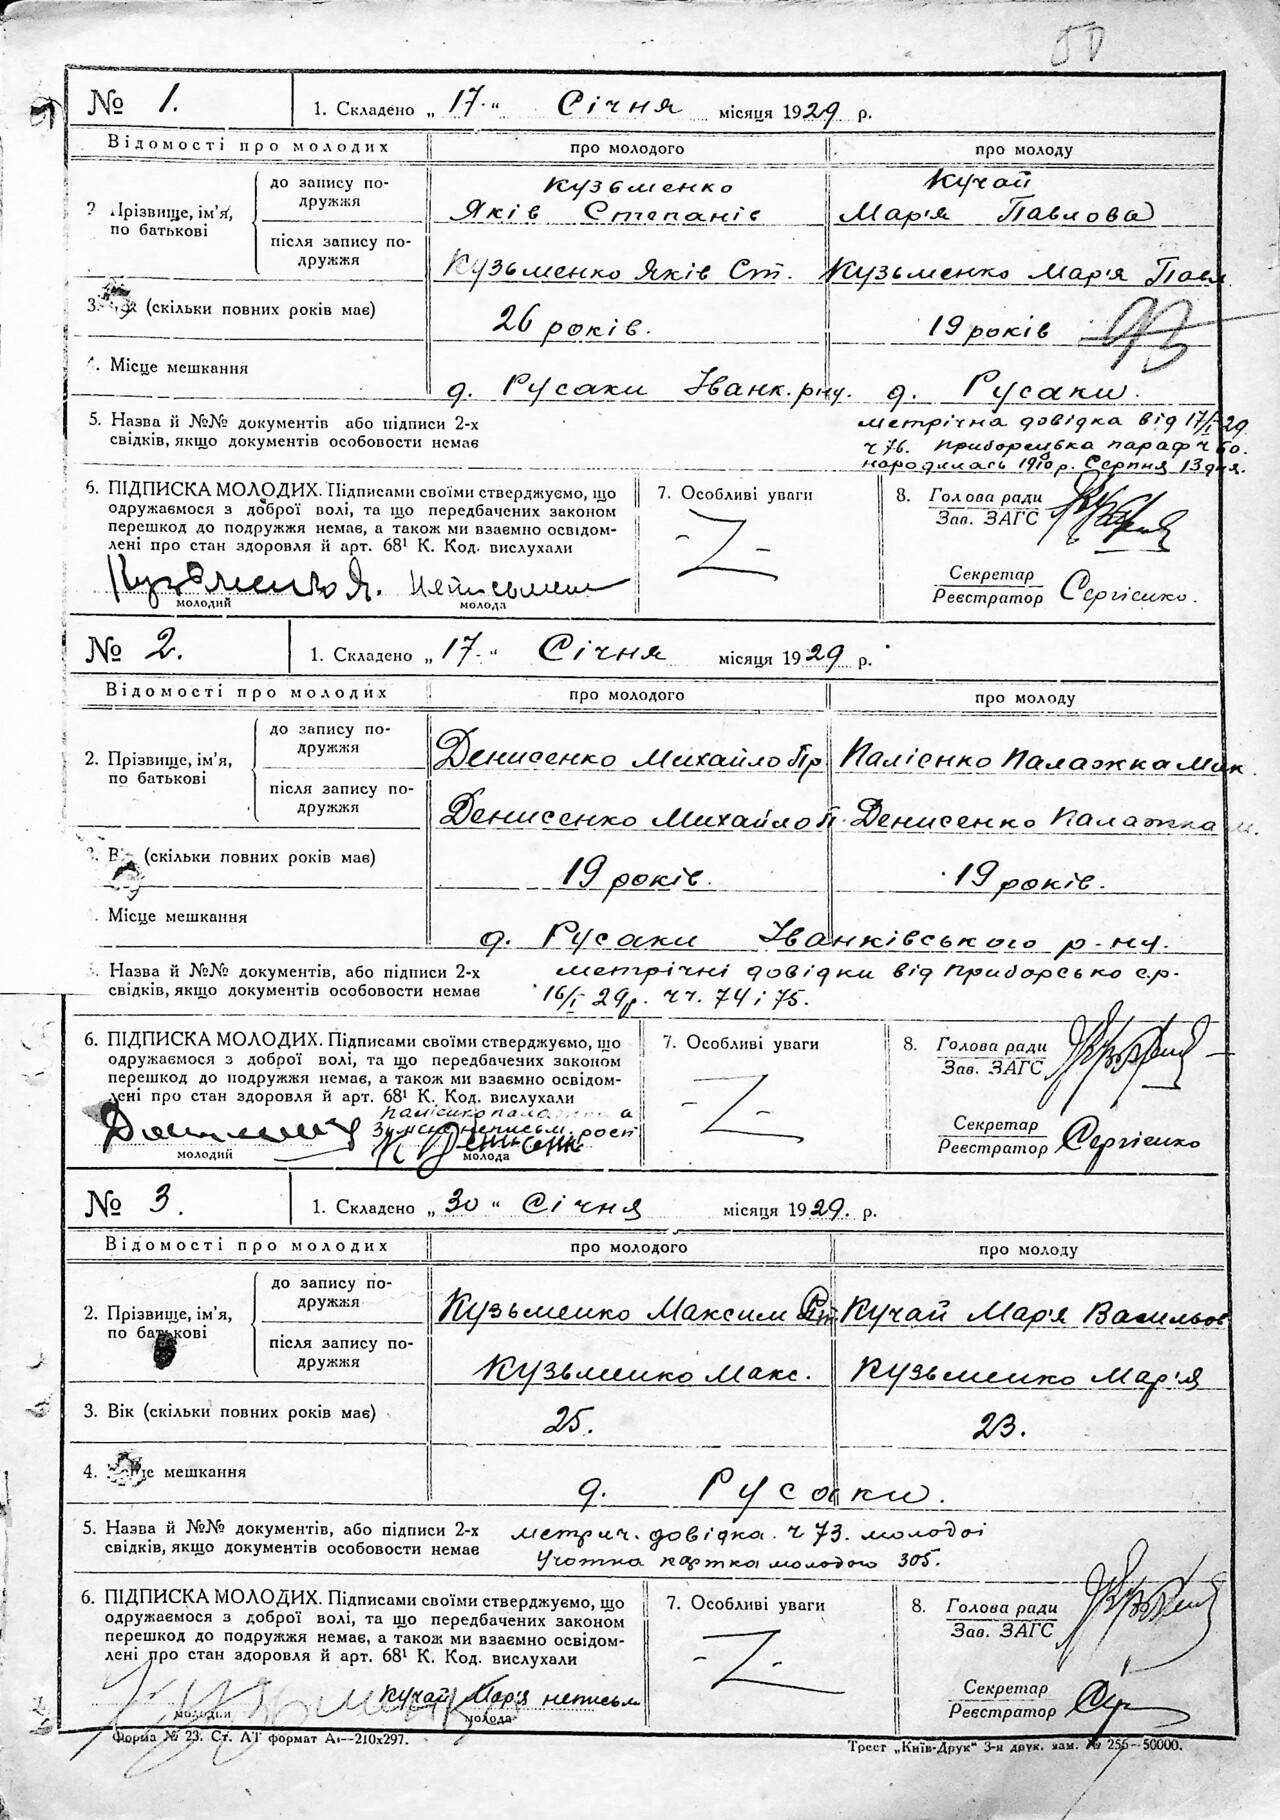 50
№ 1.
1. Складено „ 17 “ Січня місяця 1929 р.
Відомості про молодих
про молодого
про молоду
2. Прізвище, ім'я, по батькові
до запису подружжя
Кузьменко
Яків Степанів
Кучай
Мар'я Павлова
після запису подружжя
Кузьменко Яків Ст.
Кузьменко Мар'я Павл
3. (скільки повних років має)
26 років.
19 років
93
4. Місце мешкання
д. Русаки Іванк. рну.
д. Русаки.
5. Назва й №№ документів або підписи 2-х
свідків, якщо документів особовости немає
метрічна довідка від 17/I-29
ч 76. Приборецька параф ч 60.
народилась 1910 р. Серпня 13 дня.
6. ПІДПИСКА МОЛОДИХ. Підписами своїми стверджуємо, що
одружаємося з доброї волі, та що передбачених законом
перешкод до подружжя немає, а також ми взаємно освідом-
лені про стан здоровля й арт. 68¹ К. Код. вислухали
Кузьменко Я. неписьмен
молодий
молода
7. Особливі уваги
-Z-
8. Голова ради
Зав. ЗАГС
Секретар
Реєстратор Сергієнко.
№ 2.
1. Складено „ 17 “ Січня місяця 1929 р.
Відомості про молодих
про молодого
про молоду
2. Прізвище, ім'я, по батькові
до запису подружжя
Денисенко Михайло Пр.
Палієнко Палажка Мик.
після запису подружжя
Денисенко Михайло П.
Денисенко Палажка М.
3. Вік (скільки повних років має)
19 років.
19 років.
Місце мешкання
д. Русаки Іванківського р-ну.
Назва й №№ документів, або підписи 2-х
свідків, якщо документів особовости немає
метрічні довідки від Приборсько с.р.
16/I 29р. ч ч. 74 і 75.
6. ПІДПИСКА МОЛОДИХ. Підписами своїми стверджуємо, що
одружаємося з доброї волі, та що передбачених законом
перешкод до подружжя немає, а також ми взаємно освідом-
лені про стан здоровля й арт. 68¹ К. Код. вислухали
молодий
молода
7. Особливі уваги
-Z-
8. Голова ради
Зав. ЗАГС
Секретар
Реєстратор Сергієнко
№ 3.
1. Складено „ 30 “ Січня місяця 1929. р.
Відомості про молодих
про молодого
про молоду
2. Прізвище, ім'я, по батькові
до запису подружжя
Кузьменко Максим Ст
Кучай Мар'я Васильов
після запису подружжя
Кузьменко Макс.
Кузьменко Мар'я
3. Вік (скільки повних років має)
25.
23.
4. мешкання
д. Русаки.
5. Назва й №№ документів, або підписи 2-х
свідків, якщо документів особовости немає
метрич. довідка. ч 73. молодої
Учотна картка молодого 305.
6. ПІДПИСКА МОЛОДИХ. Підписами своїми стверджуємо, що
одружаємося з доброї волі, та що передбачених законом
перешкод до подружжя немає, а також ми взаємно освідом-
лені про стан здоровля й арт. 68¹ К. Код. вислухали
Кузьменко
Кучай Марія неписьм
молодий
молода
7. Особливі уваги
-Z-
8. Голова ради
Зав. ЗАГС
Секретар
Реєстратор
Форма № 23. Ст. АГ формат А₁—210х297.
Трест „Київ-Друк“ 3-я друк. зам. № 256—50000.